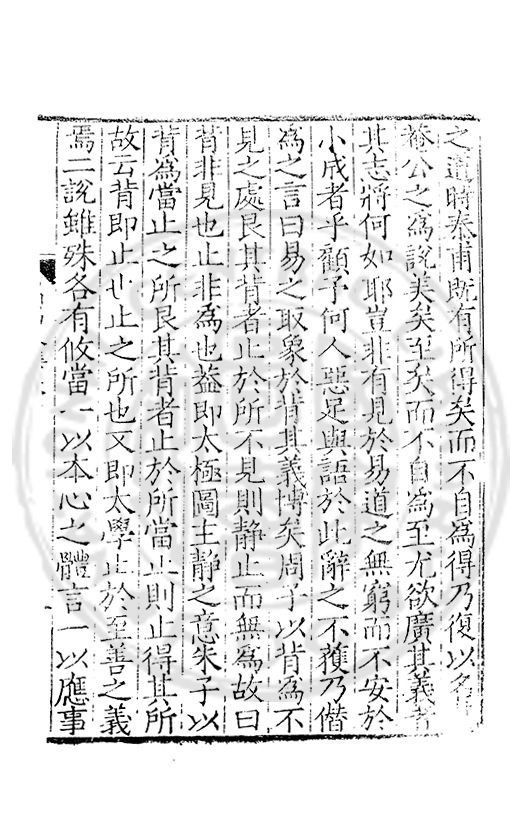 之道時泰甫既有所得矣而不自為得乃復以名
菴公之為說美矣至矣而不自為至尤欲廣其義者
其志將何如耶豈非有見於易道之無窮而不安於
小成者乎顧予何人惡足與語於此辭之不獲乃僭
為之言曰易之取象於背其義博矣周子以背為不
見之處艮其背者止於所不見則静止而無為故曰
背非見也止非為也葢即太極圖主静之意朱子以
背為當止之所艮其背者止於所當止則止得其所
故云背即止也止之所也又即太學止於至善之義
焉二說雖殊各有攸當一以本心之體言一以應事